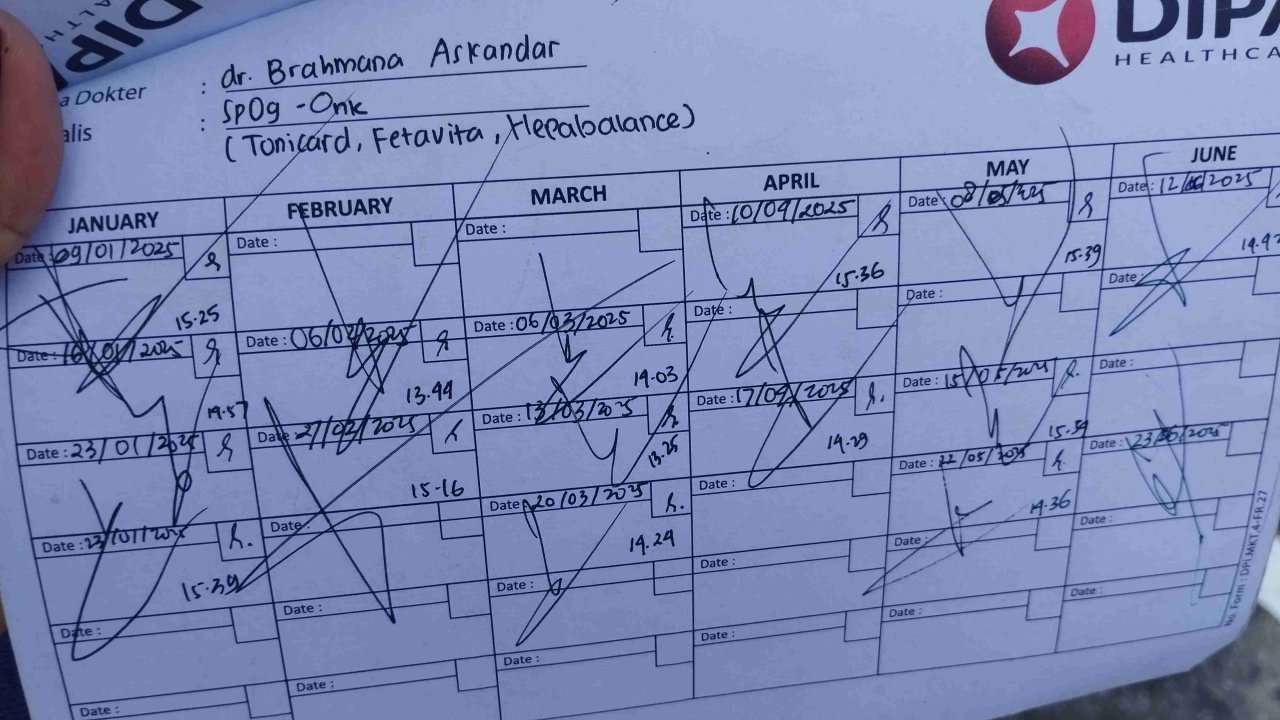 DIPA
HEALTHCA
a Dokter : dr. Brahmana Askandar
alis : SpOg - Onk
(Tonicard, Fetavita, Hepabalance)
JANUARY FEBRUARY MARCH APRIL MAY JUNE
Date : 09/01/2025 Date : Date : Date : 10/04/2025 Date : 08/05/2025 Date : 12/06/2025
15.25 15.36 15.39
Date : 16/01/2025 Date : 06/02/2025 Date : 06/03/2025 Date : Date : Date :
14.57 13.44 14.03
Date : 23/01/2025 Date : 27/02/2025 Date : 13/03/2025 Date : 17/04/2025 Date : 15/05/2025 Date :
15.16 13.25 14.29 15.34
Date : 23/01/2025 Date : Date : 20/03/2025 Date : Date : 22/05/2025 Date : 23/06/2025
15.39 14.24 14.36
Date : Date : Date : Date : Date : Date :
Date : Date : Date : Date : Date : Date :
No. Form : DPI.MKT.4-FR.27